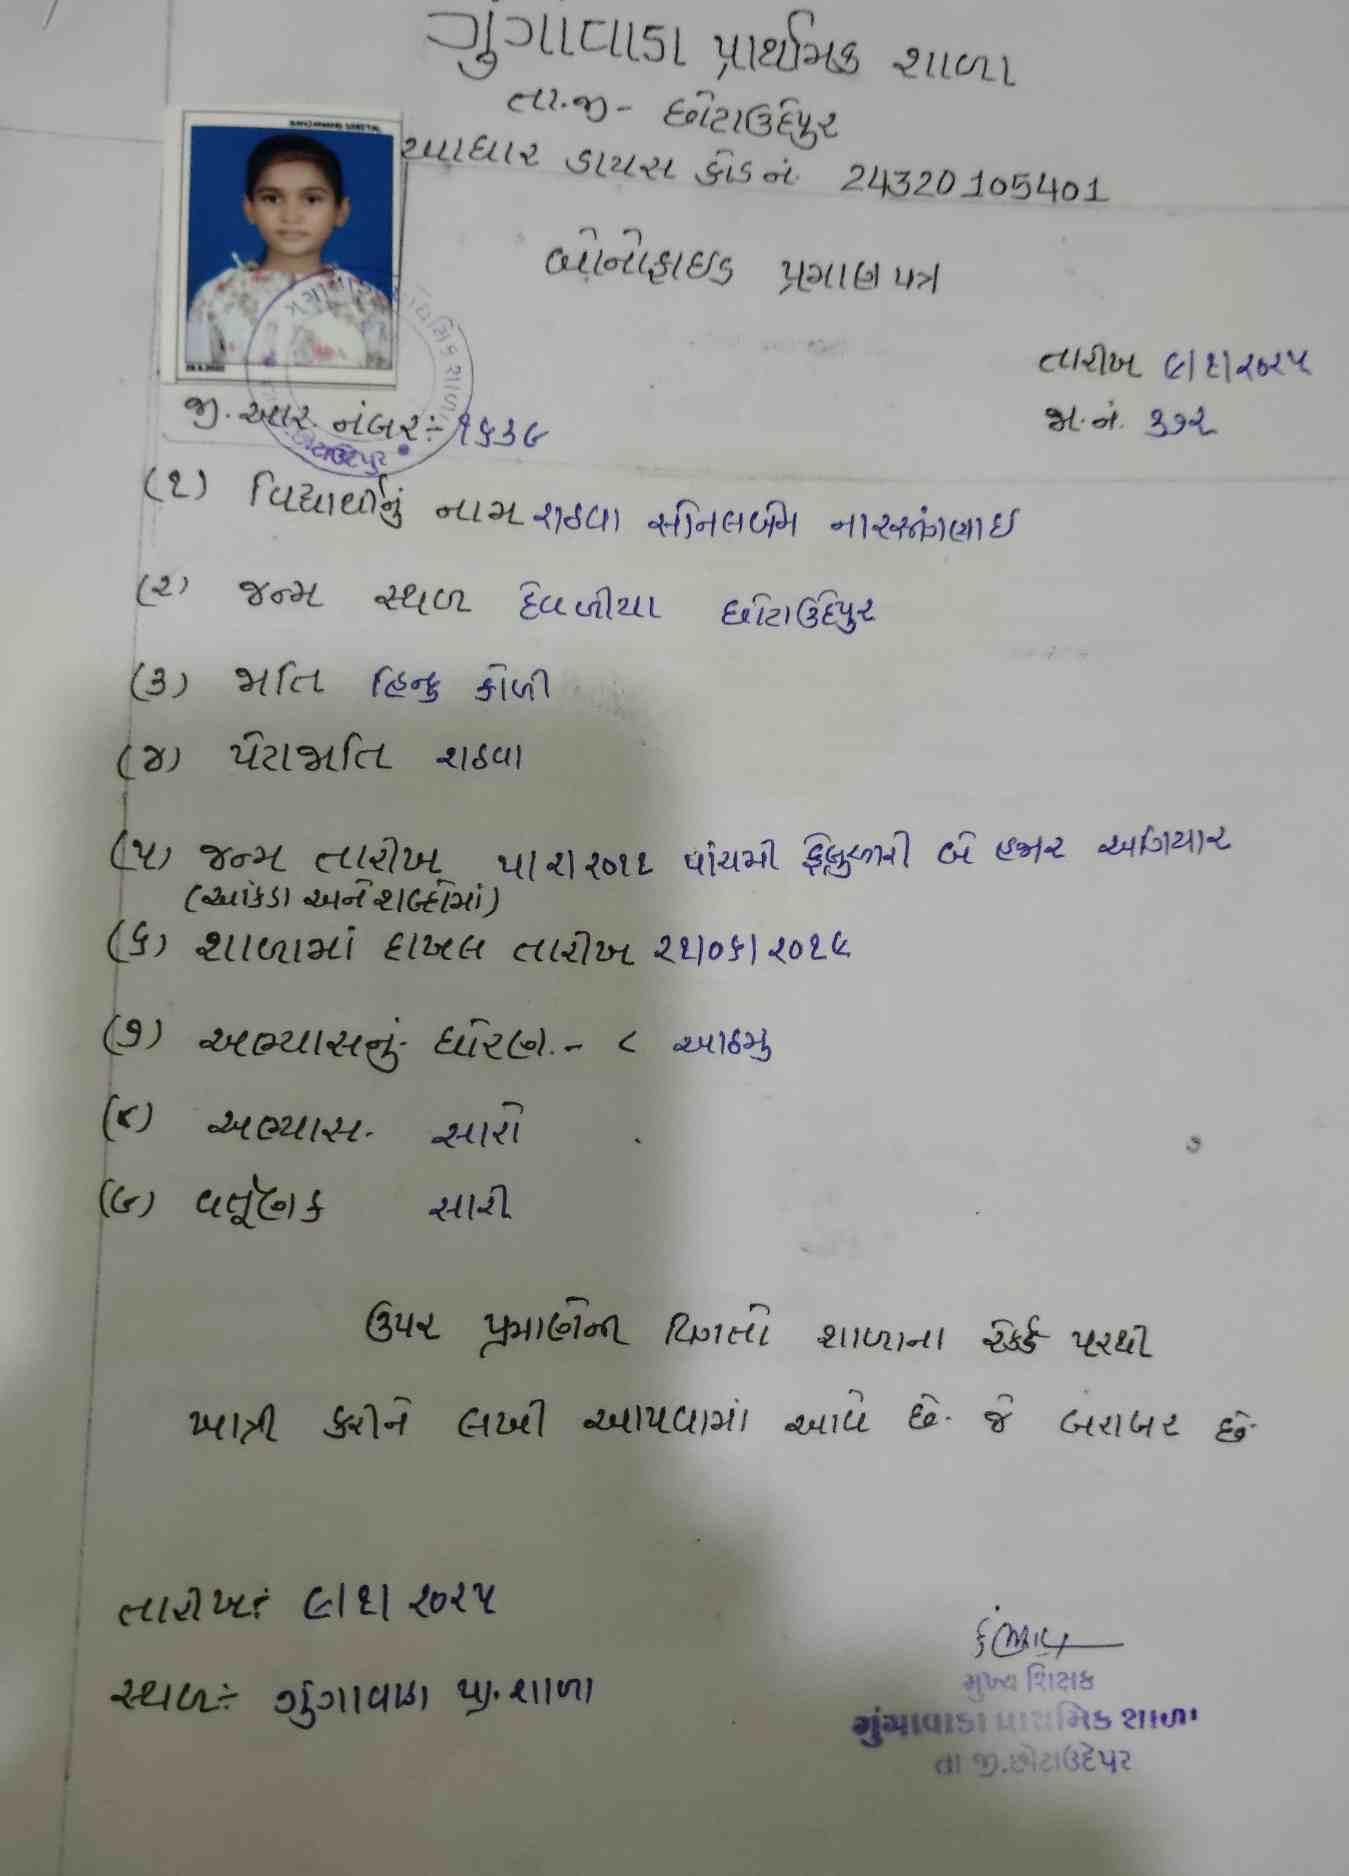 ગુંગાવાડા પ્રાથમિક શાળા
તા.જી - છોટાઉદેપુર
આધાર ડાયસ કોડ નં. 24320105401
બોનોફાઇડ પ્રમાણ પત્ર
તારીખ ૯/૬/૨૦૨૫
જા.નં. ૩૭૨
જી. આર. નંબર:- ૧૬૩૯
(૧) વિદ્યાર્થીનું નામ રાઠવા નારસીંગભાઇ
(૨) જન્મ સ્થળ દેવળીયા છોટાઉદેપુર
(૩) જાતિ હિન્દુ કોળી
(૪) પેટાજાતિ રાઠવા
(૫) જન્મ તારીખ ૫/૨/૨૦૧૧ પાંચમી ફેબ્રુઆરી બે હજાર અગિયાર
(આંકડા અને શબ્દોમાં)
(૬) શાળામાં દાખલ તારીખ ૨૧/૦૬/૨૦૧૯
(૭) અભ્યાસનું ધોરણ. - ૮ આઠમુ
(૮) અભ્યાસ. સારો
(૯) વર્તૂણક સારી
ઉપર પ્રમાણેની વિગતો શાળાના રેકર્ડ પરથી
ખાત્રી કરીને લખી આપવામાં આવે છે. જે બરાબર છે.
તારીખ: ૯/૬/૨૦૨૫
સ્થળ:- ગુંગાવાડા પ્રા. શાળા
મુખ્ય શિક્ષક
ગુંગાવાડા પ્રાથમિક શાળા
તા જી.છોટાઉદેપુર